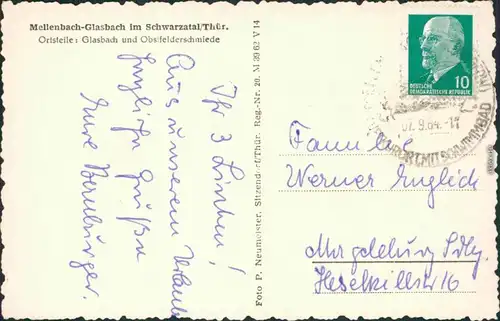 Mellenbach-Glasbach im Schwarzatal/Thür.
Ortsteile: Glasbach und Obstfelderschmiede
Ihr 3 Lieben!
Aus unserem Urlaub
herzliche Grüße
Eure Bernburger.
Foto P. Neumeister, Sitzendorf/Thür. Reg.-Nr. 29. M 39 62 V 14
DEUTSCHE
DEMOKRATISCHE REPUBLIK
10
07.9.64.-17
KURORT MIT SCHWIMMBAD
Familie
Werner Englich
Magdeburg
16